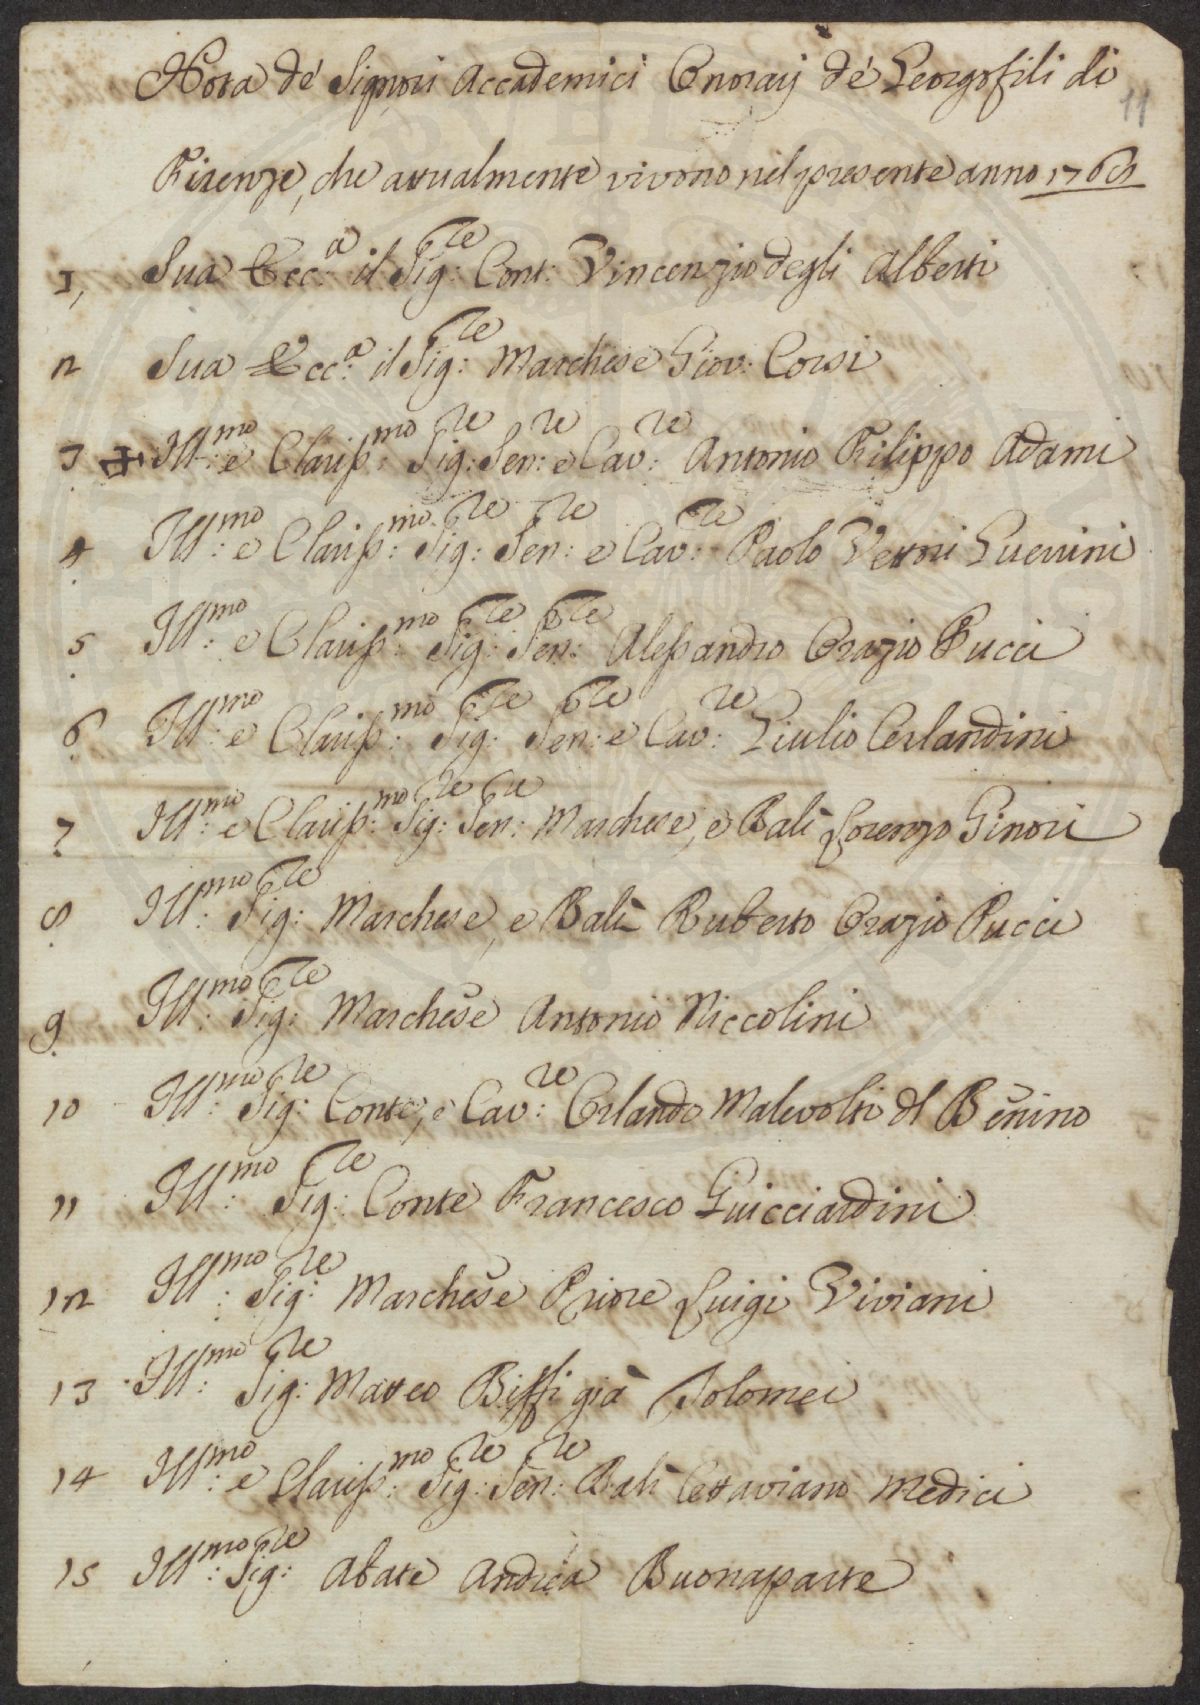 Nota de' Signori Accademici Onorarj de' Georgofili di
11
Firenze, che attualmente vivono nel presente anno
1, Sua Ecc:ª il Sig:re Cont: Vincenzio degli Alberti
2 Sua Ecc:ª il Sig:re Marchese Giov: Corsi
3 Ill:mo e Clariss:mo Sig:re Sen:re e Cav:re Antonio Filippo Adami
4 Ill:mo e Clariss:mo Sig:re Sen:re e Cav:re Paolo Vettori Guerrini
5 Ill:mo e Clariss:mo Sig:re Sen:re Alessandro Orazio Pucci
6 Ill:mo e Clariss:mo Sig:re Sen:re e Cav:re Giulio Orlandini
7 Ill:mo e Clariss:mo Sig:re Sen:re Marchese, e Balì Lorenzo Ginori
8 Ill:mo Sig:re Marchese, e Balì Ruberto Orazio Pucci
9 Ill:mo Sig:re Marchese Antonio Niccolini
10 Ill:mo Sig:re Conte, e Cav:re Orlando Malevolti del Benino
11 Ill:mo Sig:re Conte Francesco Guicciardini
12 Ill:mo Sig:re Marchese Priore Luigi Viviani
13 Ill:mo Sig:re Matteo Biffi già Tolomei
14 Ill:mo e Clariss:mo Sig:re Sen:re Balì Ottaviano Medici
15 Ill:mo Sig:re Abate Andrea Buonaparte